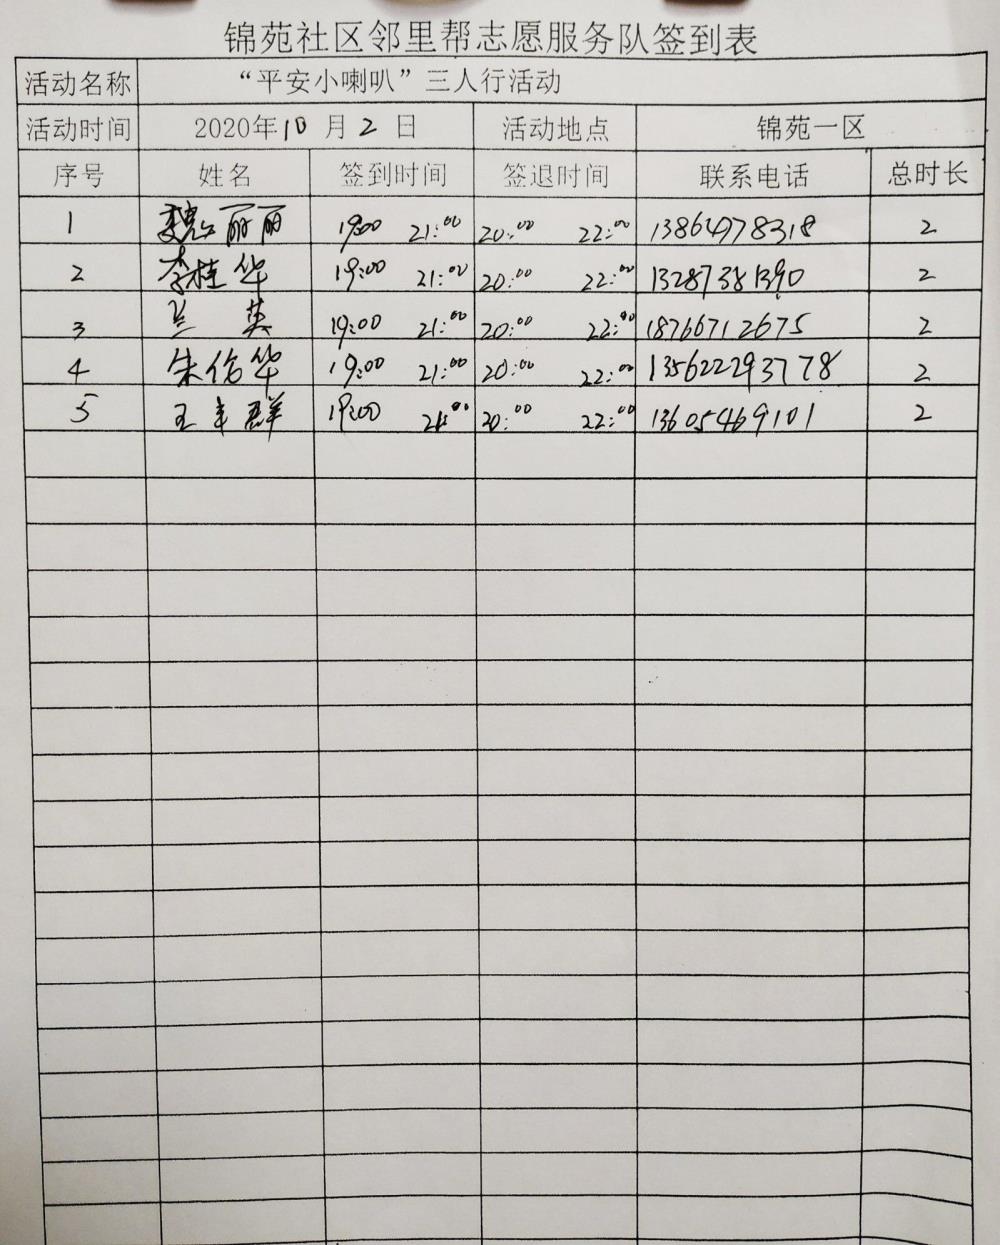 锦苑社区邻里帮志愿服务队签到表
活动名称 “平安小喇叭”三人行活动
活动时间 2020年10月2日 活动地点 锦苑一区
序号 姓名 签到时间 签退时间 联系电话 总时长
1 魏丽丽 19:00 21:00 20:00 22:00 13864978318 2
2 李桂华 19:00 21:00 20:00 22:00 13287381390 2
3 兰英 19:00 21:00 20:00 22:00 18766712675 2
4 朱伦华 19:00 21:00 20:00 22:00 13562229377 8 2
5 王丰群 19:00 21:00 20:00 22:00 13605469101 2